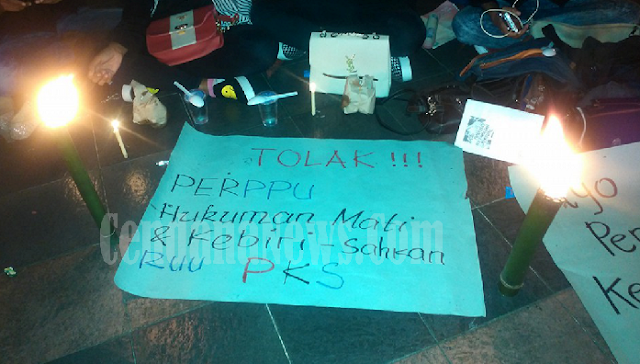 TOLAK !!!
PERPPU
Hukuman Mati
& Kebiri - Sahkan
RUU PKS
CendanaNews.Com
yo
Per
Ke